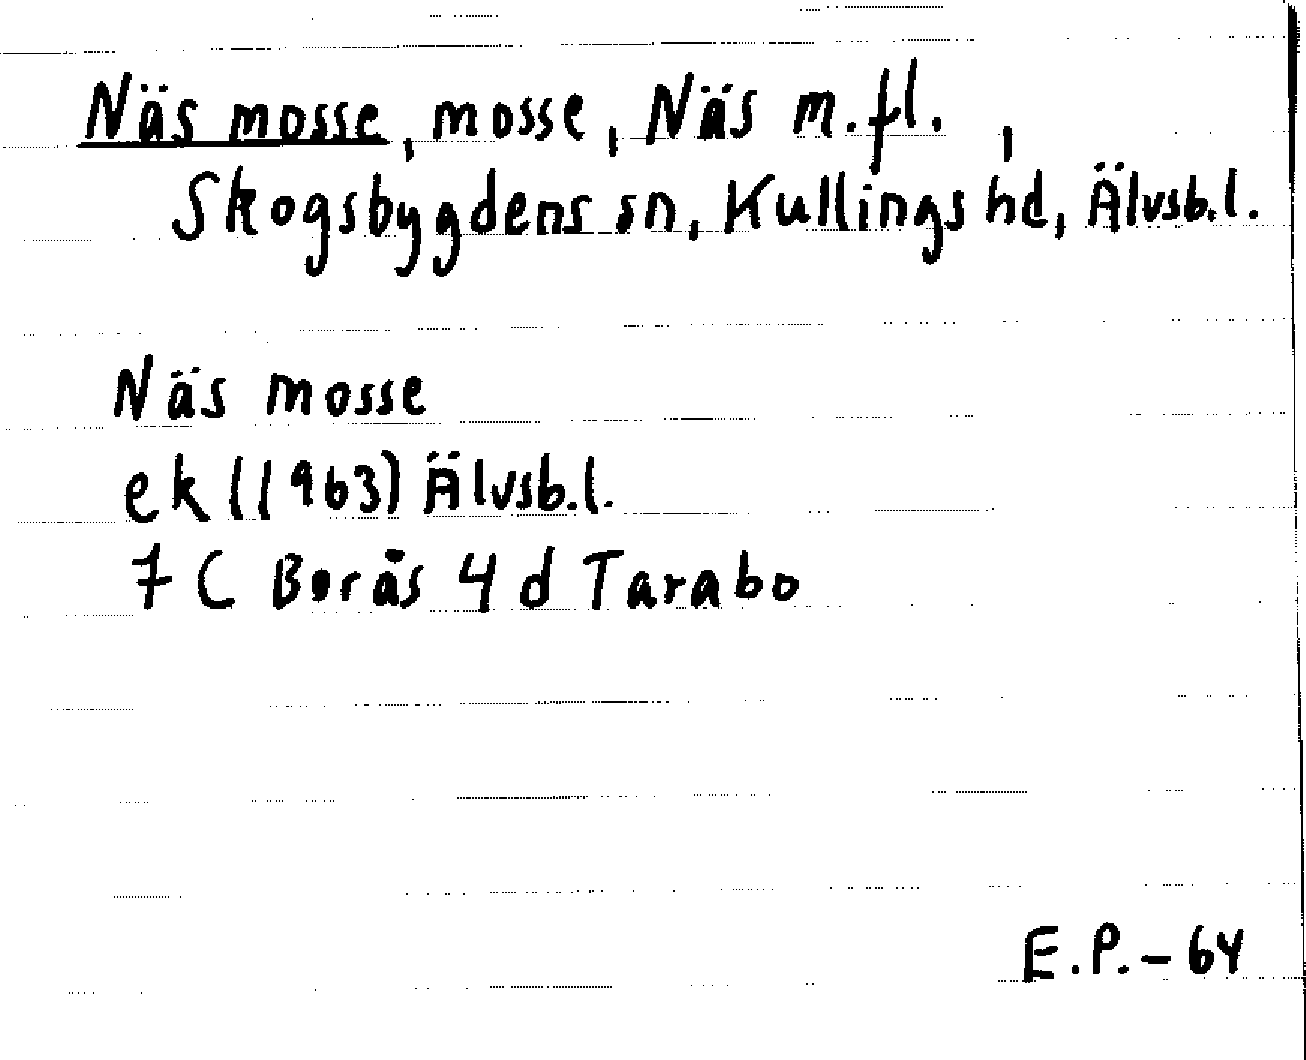 Näs mosse, mosse, Näs m.fl.,
Skogsbygdens sn, Kullings hd, Älvsb.l.
Näs mosse
ek (1963) Älvsb.l.
7 C Borås 4 d Tarabo
E.P.-64